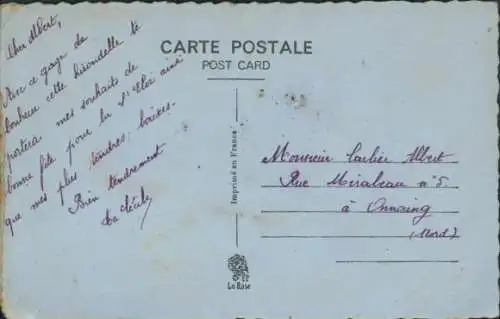 CARTE POSTALE
POST CARD
Cher Albert,
Avec ce gage de
bonheur cette hirondelle te
portera mes souhaits de
bonne fête pour la St Eloi ainsi
que mes plus tendres baisers.
Bien tendrement
Ta Cécile
Imprimé en France
Monsieur Carlier Albert
Rue Mirabeau n° 5.
à Onnaing
(Nord)
La Rose